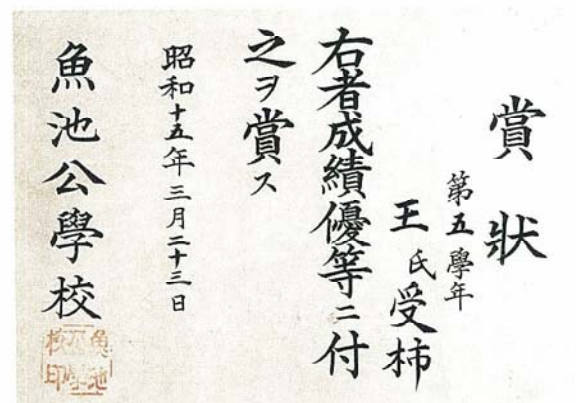 賞狀
第五學年
王氏受柿
右者成績優等ニ付
之ヲ賞ス
昭和十五年三月二十三日
魚池公學校
魚池公學校印